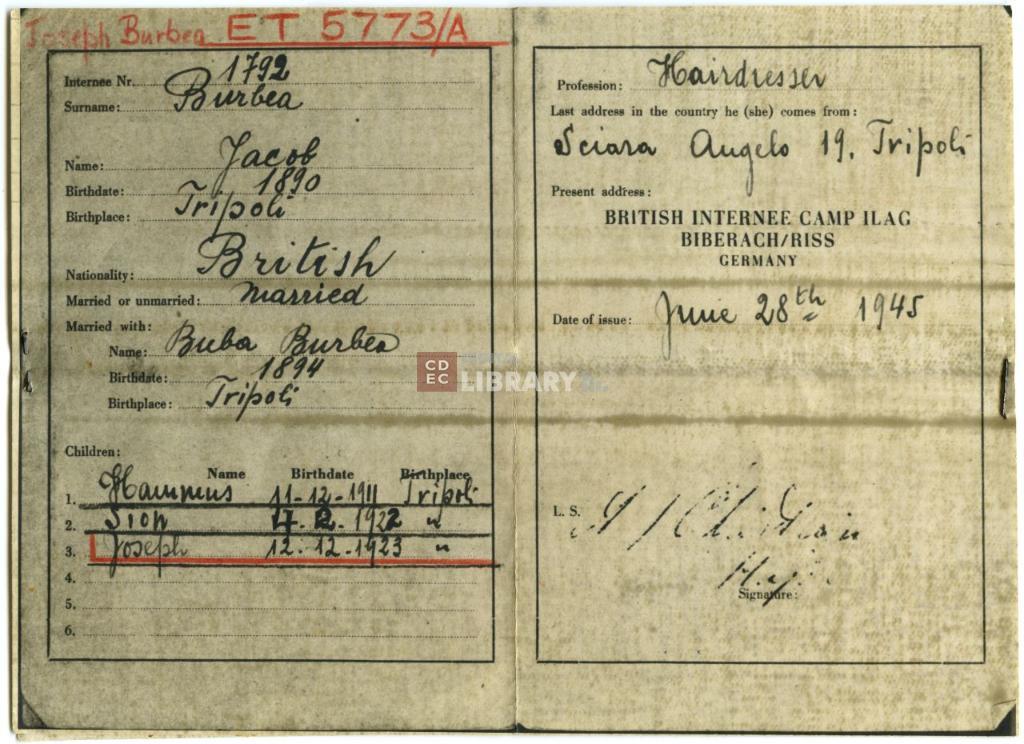 Joseph Burbea ET 5773/A
Internee Nr. 1792
Surname: Burbea
Name: Jacob
Birthdate: 1890
Birthplace: Tripoli
Nationality: British
Married or unmarried: married
Married with:
Name: Buba Burbea
Birthdate: 1894
Birthplace: Tripoli
Children:
Name Birthdate Birthplace
1. Hammus 11-12-1911 Tripoli
2. Sion 1922 "
3. Joseph 12.-12.-1923 "
4.
5.
6.
Profession: Hairdresser
Last address in the country he (she) comes from:
Sciara Angelo 19, Tripoli
Present address:
BRITISH INTERNEE CAMP ILAG
BIBERACH/RISS
GERMANY
Date of issue: June 28th 1945
L. S.
Signature:
CDEC LIBRARY